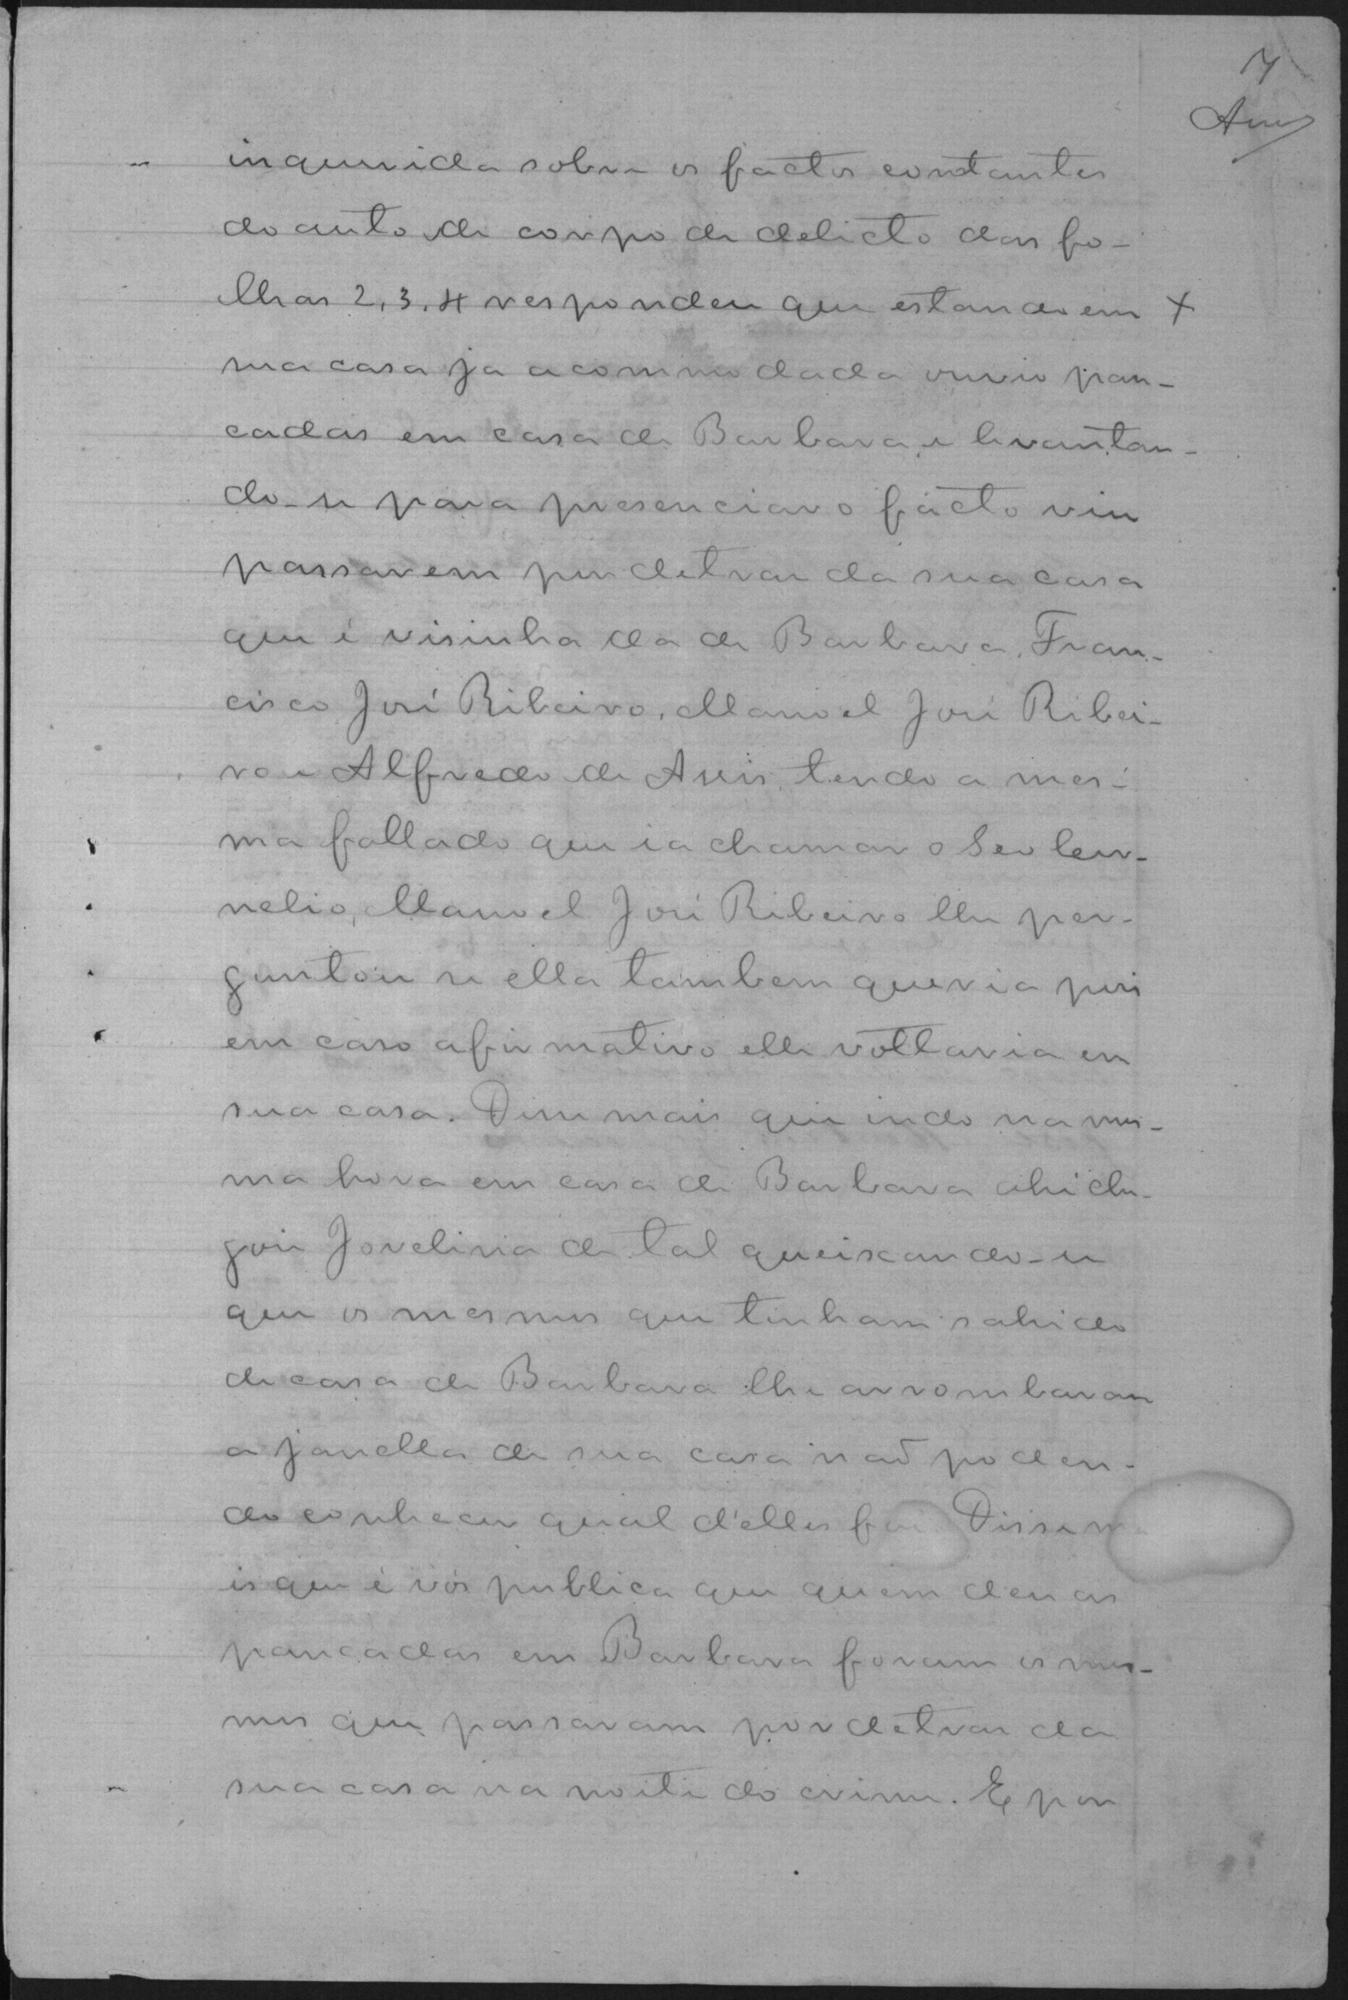 7
inquirida sobre os factos constantes
do auto de corpo de delicto das fo-
lhas 2, 3, 4 respondeu que estando em X
sua casa ja acommodada ouvio pan-
cadas em casa de Barbara, e levantan-
do-se para presenciar o facto viu
passarem por detras da sua casa
que é visinha da de Barbara, Fran-
cisco José Ribeiro, Manoel José Ribei-
ro e Alfredo de Assis, tendo a mes-
ma fallado que ia chamar o Seo Cor-
nelio, Manoel José Ribeiro lhe per-
guntou se ella tambem queria pois
em caso afirmativo elle voltaria em
sua casa. Disse mais que indo na mes-
ma hora em casa de Barbara ahi che-
gou Jovelina de tal queixando-se
que os mesmos que tinham sahido
de casa de Barbara lhe arrombaram
a janella de sua casa não poden-
do conhecer qual d'elles foi Disse ma
is que é vós publica que quem deu as
pancadas em Barbara foram os mes-
mos que passaram por detras da
sua casa na noite do crime. E por